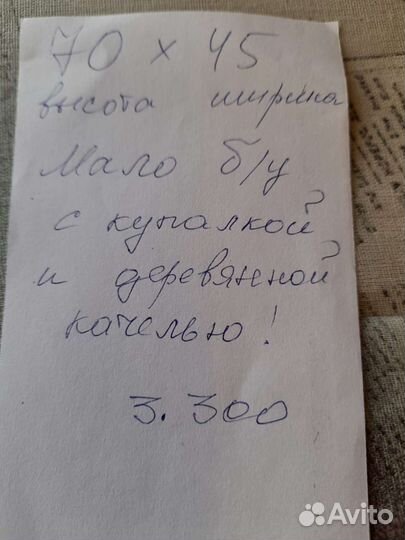 70 x 45
высота ширина
Мало б/у
с купалкой
и деревянной
качелью!
3.300
Avito